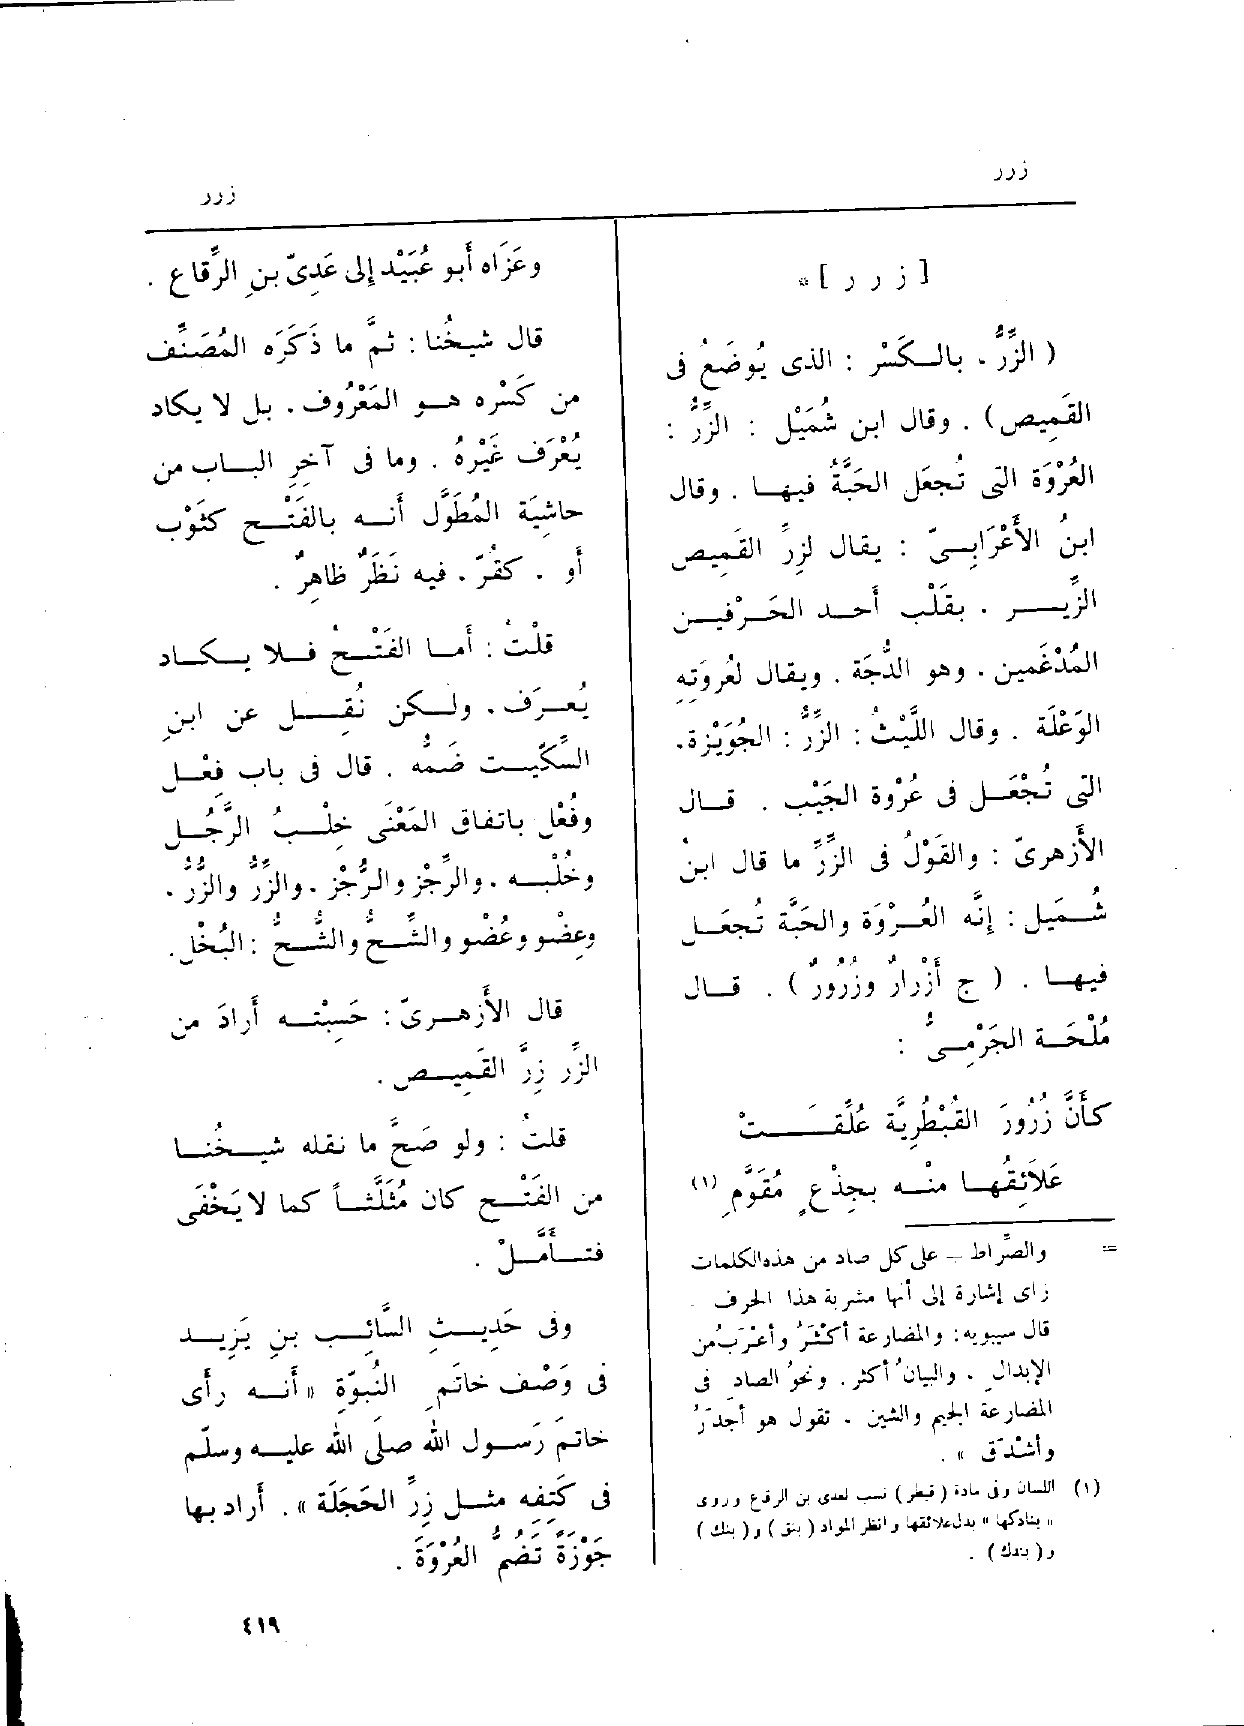 زرر
زرر
[ ز ر ر ] *
( الزِّرُّ ، بالكَسْر : الذى يُوضَعُ فى
القَمِيص) . وقال ابن شُمَيْل : الزِّرُّ :
العُرْوَة التى تُجعَل الحَبَّةُ فيها . وقال
ابنُ الأَعْرَابِىّ : يقال لزِرِّ القَمِيص
الزِّير . بقَلْب أَحد الحَرْفين
المُدْغَمين . وهو الدُّجَة . ويقال لعُروَتِهِ
الوَعْلَة . وقال اللَّيْثُ : الزِّرُّ : الجُوَيْزة.
التى تُجْعَل فى عُرْوة الجَيْب . قال
الأَزهرىّ : والقَوْلُ فى الزِّرِّ ما قال ابنُ
شُمَيل : إنَّه العُرْوَة والحَبَّة تُجعَل
فيها . ( ج أَزْرارٌ وزُرُورٌ ) . قال
مُلْحَة الجَرْمِىُّ :
كأَنَّ زُرُورَ القُبْطُرِيَّة عُلِّقَتْ
عَلَائِقُها منْه بجِذْعٍ مُقَوَّمِ (١)
= والصراط – على كل صاد من هذه الكلمات
زاى إشارة إلى أنها مشربة هذا الحرف .
قال سيبويه: والمضارعة أكثَرُ وأعْرَبُ من
الإبدال . والبيانُ أكثر. ونحوُ الصاد فى
المضارعة الجيم والشين . تقول هو أجدَرُ
وأشْدَق » .
(١) اللسان وفى مادة ( قبطر ) نسب لعدى بن الرقاع وروى
« بنادكها » بدل علائقها وانظر المواد ( بنق ) و( بنك )
و( بندك ) .
وعَزَاه أَبو عُبَيْد إلى عَدِىّ بنِ الرِّقاعِ .
قال شيخُنا : ثمَّ ما ذَكَرَه المُصَنِّف
من كَسْره هو المَعْرُوف . بل لا يكاد
يُعْرَف غَيْرُه . وما فى آخِرِ الباب من
حاشِيَة المُطَوَّل أَنه بالفَتْح كثَوْب
أَو . كقُرّ . فيه نَظَرٌ ظاهِرٌ .
قلْتُ : أَما الفَتْحُ فلا يكاد
يُعرَف . ولكن نُقِل عن ابنِ
السِّكِّيت ضَمُّه . قال فى باب فِعْل
وفُعْل باتفاق المَعْنَى خِلْبُ الرَّجُل
وخُلْبه . والرِّجْز والرُّجْز . والزِّرُّ والزُّرُّ .
وعِضْو وعُضْو والشِّحُّ والشُّحُّ : البُخْل.
قال الأَزهرىّ : حَسِبْته أَرادَ من
الزِّر زِرَّ القَمِيص .
قلتُ : ولو صَحَّ ما نقله شيخُنا
من الفَتْح كان مُثَلَّثاً كما لا يَخْفَى
فتأَمَّلْ .
وفى حَدِيثِ السَّائِب بنِ يَزِيد
فى وَصْف خاتَمِ النُّبوّةِ « أَنه رأَى
خاتمَ رَسول الله صلّى الله عليه وسلّم
فى كَتِفِه مثل زِرِّ الحَجَلَة » . أَراد بها
جَوْزَةً تَضُمُّ العُرْوَةَ .
٤١٩